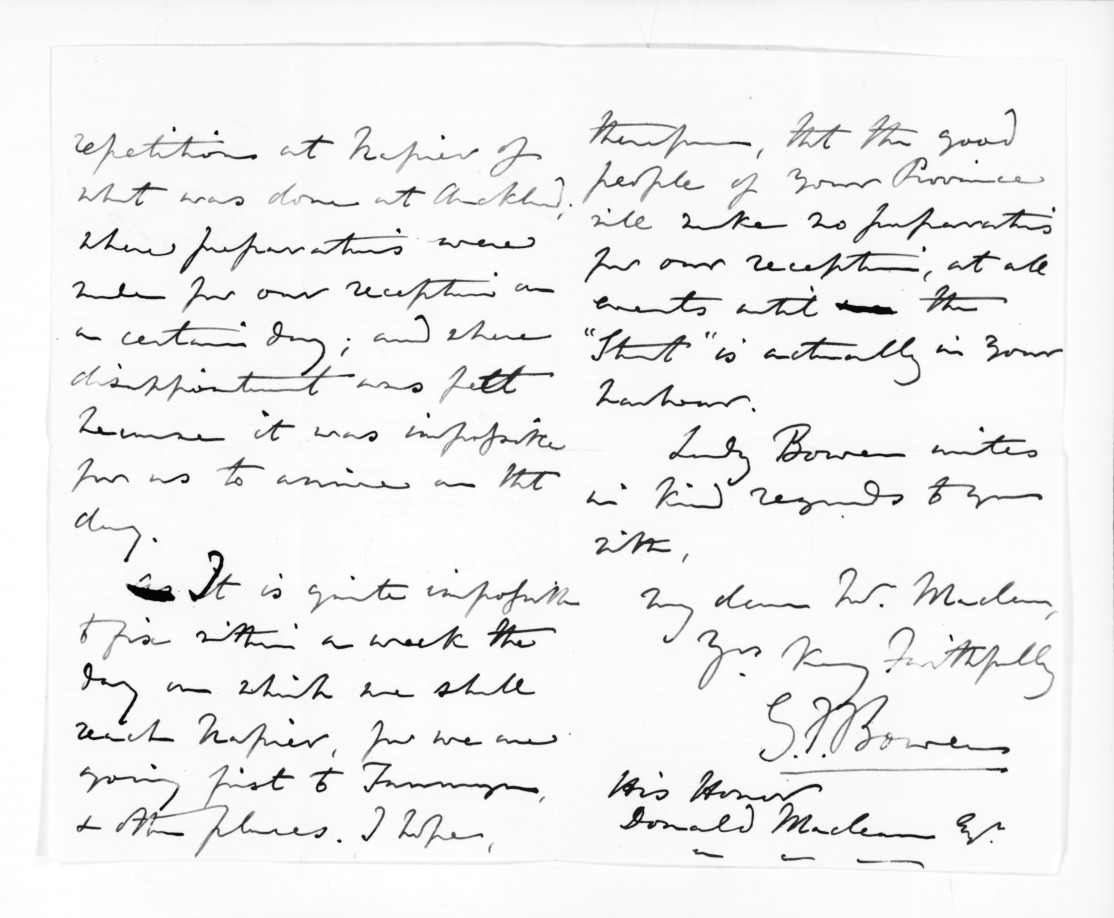 repetition at Napier of
what was done at Auckland,
where preparations were
made for our reception on
a certain day; and where
disappointment was felt
because it was impossible
for us to arrive on that
day.
It is quite impossible
to fix within a week the
day on which we shall
reach Napier, for we are
going first to
& other places. I hope,
therefore, that the good
people of your Province
will make no preparations
for our reception, at all
events until the
"Sturt" is actually in your
harbour.
Lady Bowen unites
in kind regards to you
with,
My dear Mr. Maclean,
Yrs. Very Faithfully
G. F. Bowen
His Honor
Donald Maclean Esqr.